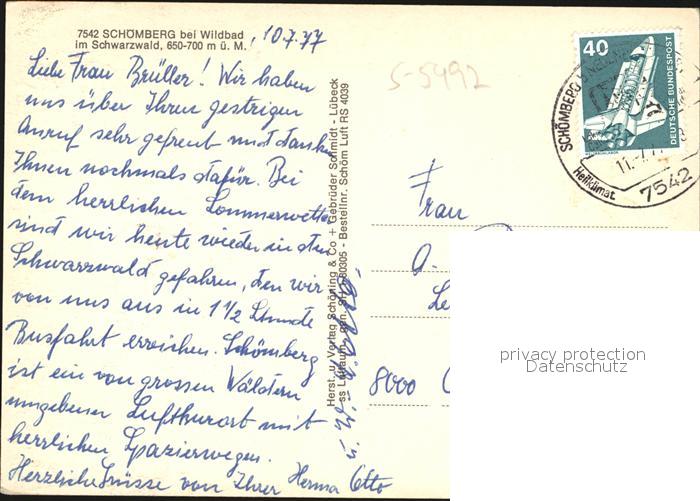 7542 SCHÖMBERG bei Wildbad
im Schwarzwald, 650-700 m ü. M.
10.7.77
Liebe Frau Brüller! Wir haben
uns über Ihren gestrigen
Anruf sehr gefreut und danken
Ihnen nochmals dafür. Bei
dem herrlichen Sommerwetter
sind wir heute wieder in den
Schwarzwald gefahren, den wir
von uns aus in 1 1/2 Stunde
Busfahrt erreichen. Schömberg
ist ein von grossen Wäldern
umgebener Luftkurort mit
herrlichen Spazierwegen.
Herzliche Grüsse von Ihrer Herma Otto
Herst. u. Verlag Schöning & Co + Gebrüder Schmidt - Lübeck
60305 - Bestellnr. Schöm Luft RS 4039
S-5492
40
DEUTSCHE BUNDESPOST
SCHÖMBERG
Heilklimat.
7542
Frau
8000
privacy protection
Datenschutz